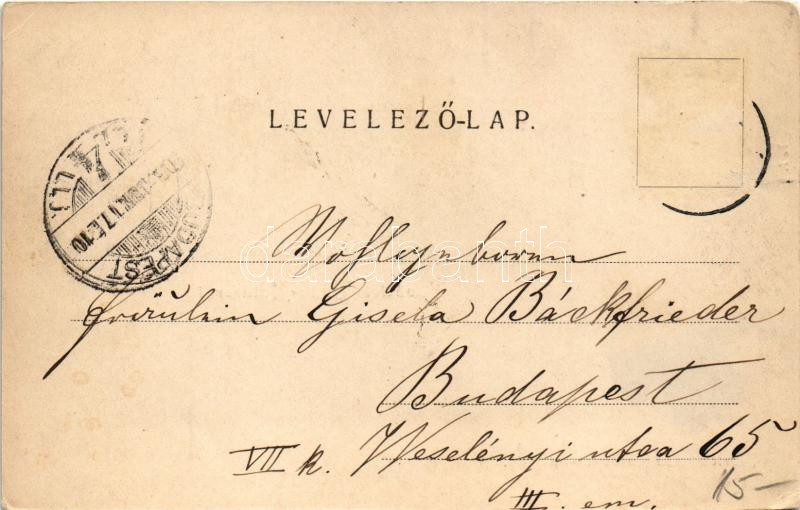 LEVELEZŐ-LAP.
BUDAPEST
Wohlgeboren
Fräulein Gisela Báckfrieder
Budapest
VII k. Weselényi utca 65
III. em.
15-
darabanth